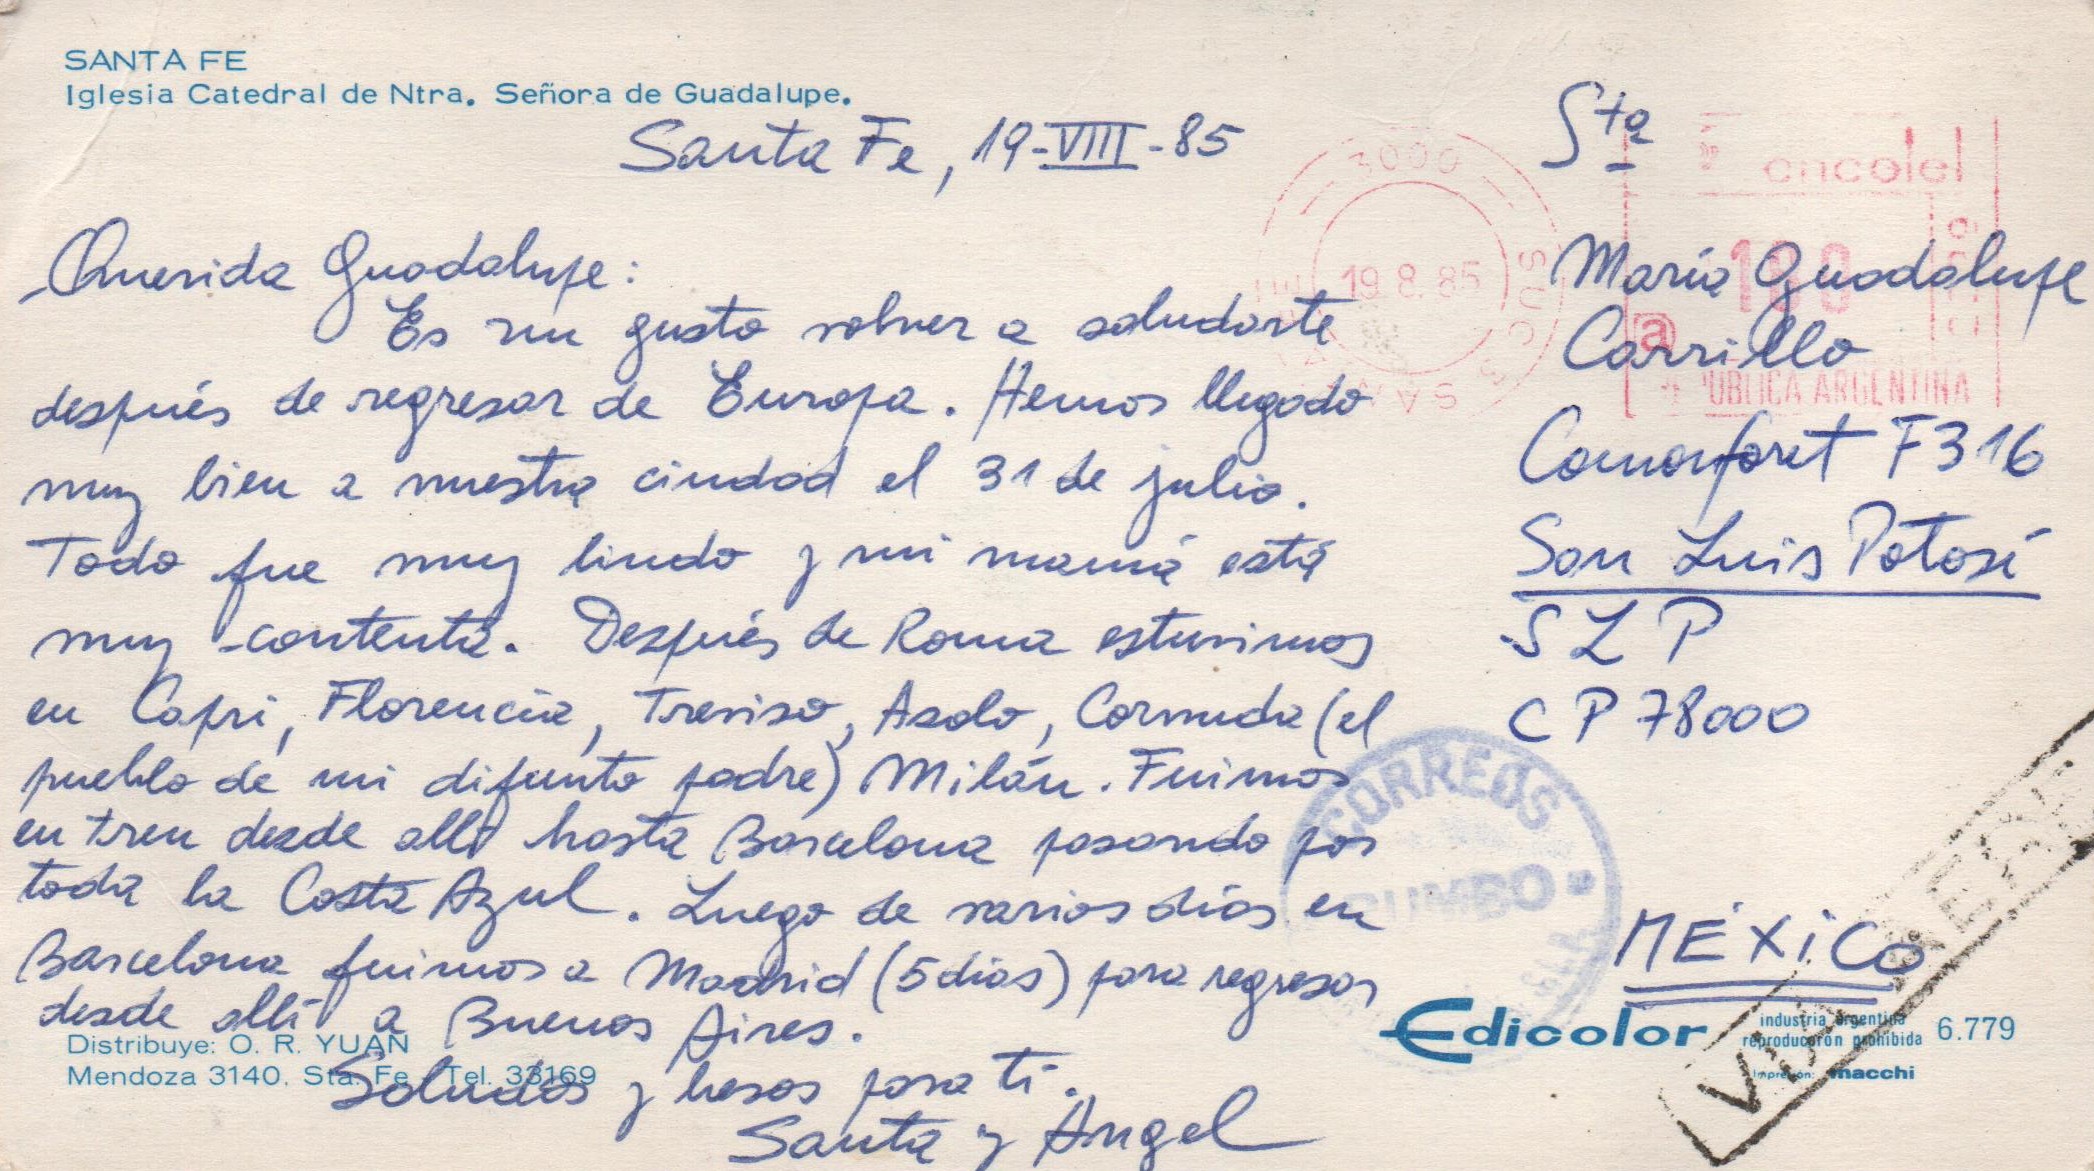 SANTA FE
Iglesia Catedral de Ntra. Señora de Guadalupe.
Santa Fe, 19-VIII-85
Querida Guadalupe:
Es un gusto volver a saludarte
después de regresar de Europa. Hemos llegado
muy bien a nuestra ciudad el 31 de julio.
Todo fue muy lindo y mi mamá está
muy contenta. Después de Roma estuvimos
en Capri, Florencia, Treviso, Asolo, Cornuda (el
pueblo de mi difunto padre) Milán. Fuimos
en tren desde allí hasta Barcelona pasando por
toda la Costa Azul. Luego de varios días en
Barcelona fuimos a Madrid (5 días) para regresar
desde allí a Buenos Aires.
Saludos y besos para ti.
Santa y Angel
Distribuye: O. R. YUAN
Mendoza 3140. Sta. Fe Tel. 33169
Sta
María Guadalupe
Carrillo
Comonforet F316
San Luis Potosí
SLP
CP 78000
MÉXICO
3000
19.8.85
SUC
encotel
REPUBLICA ARGENTINA
CORREOS
RUMBO
VIA AEREA
Edicolor
industria argentina
reproducción prohibida
6.779
Impresión: macchi